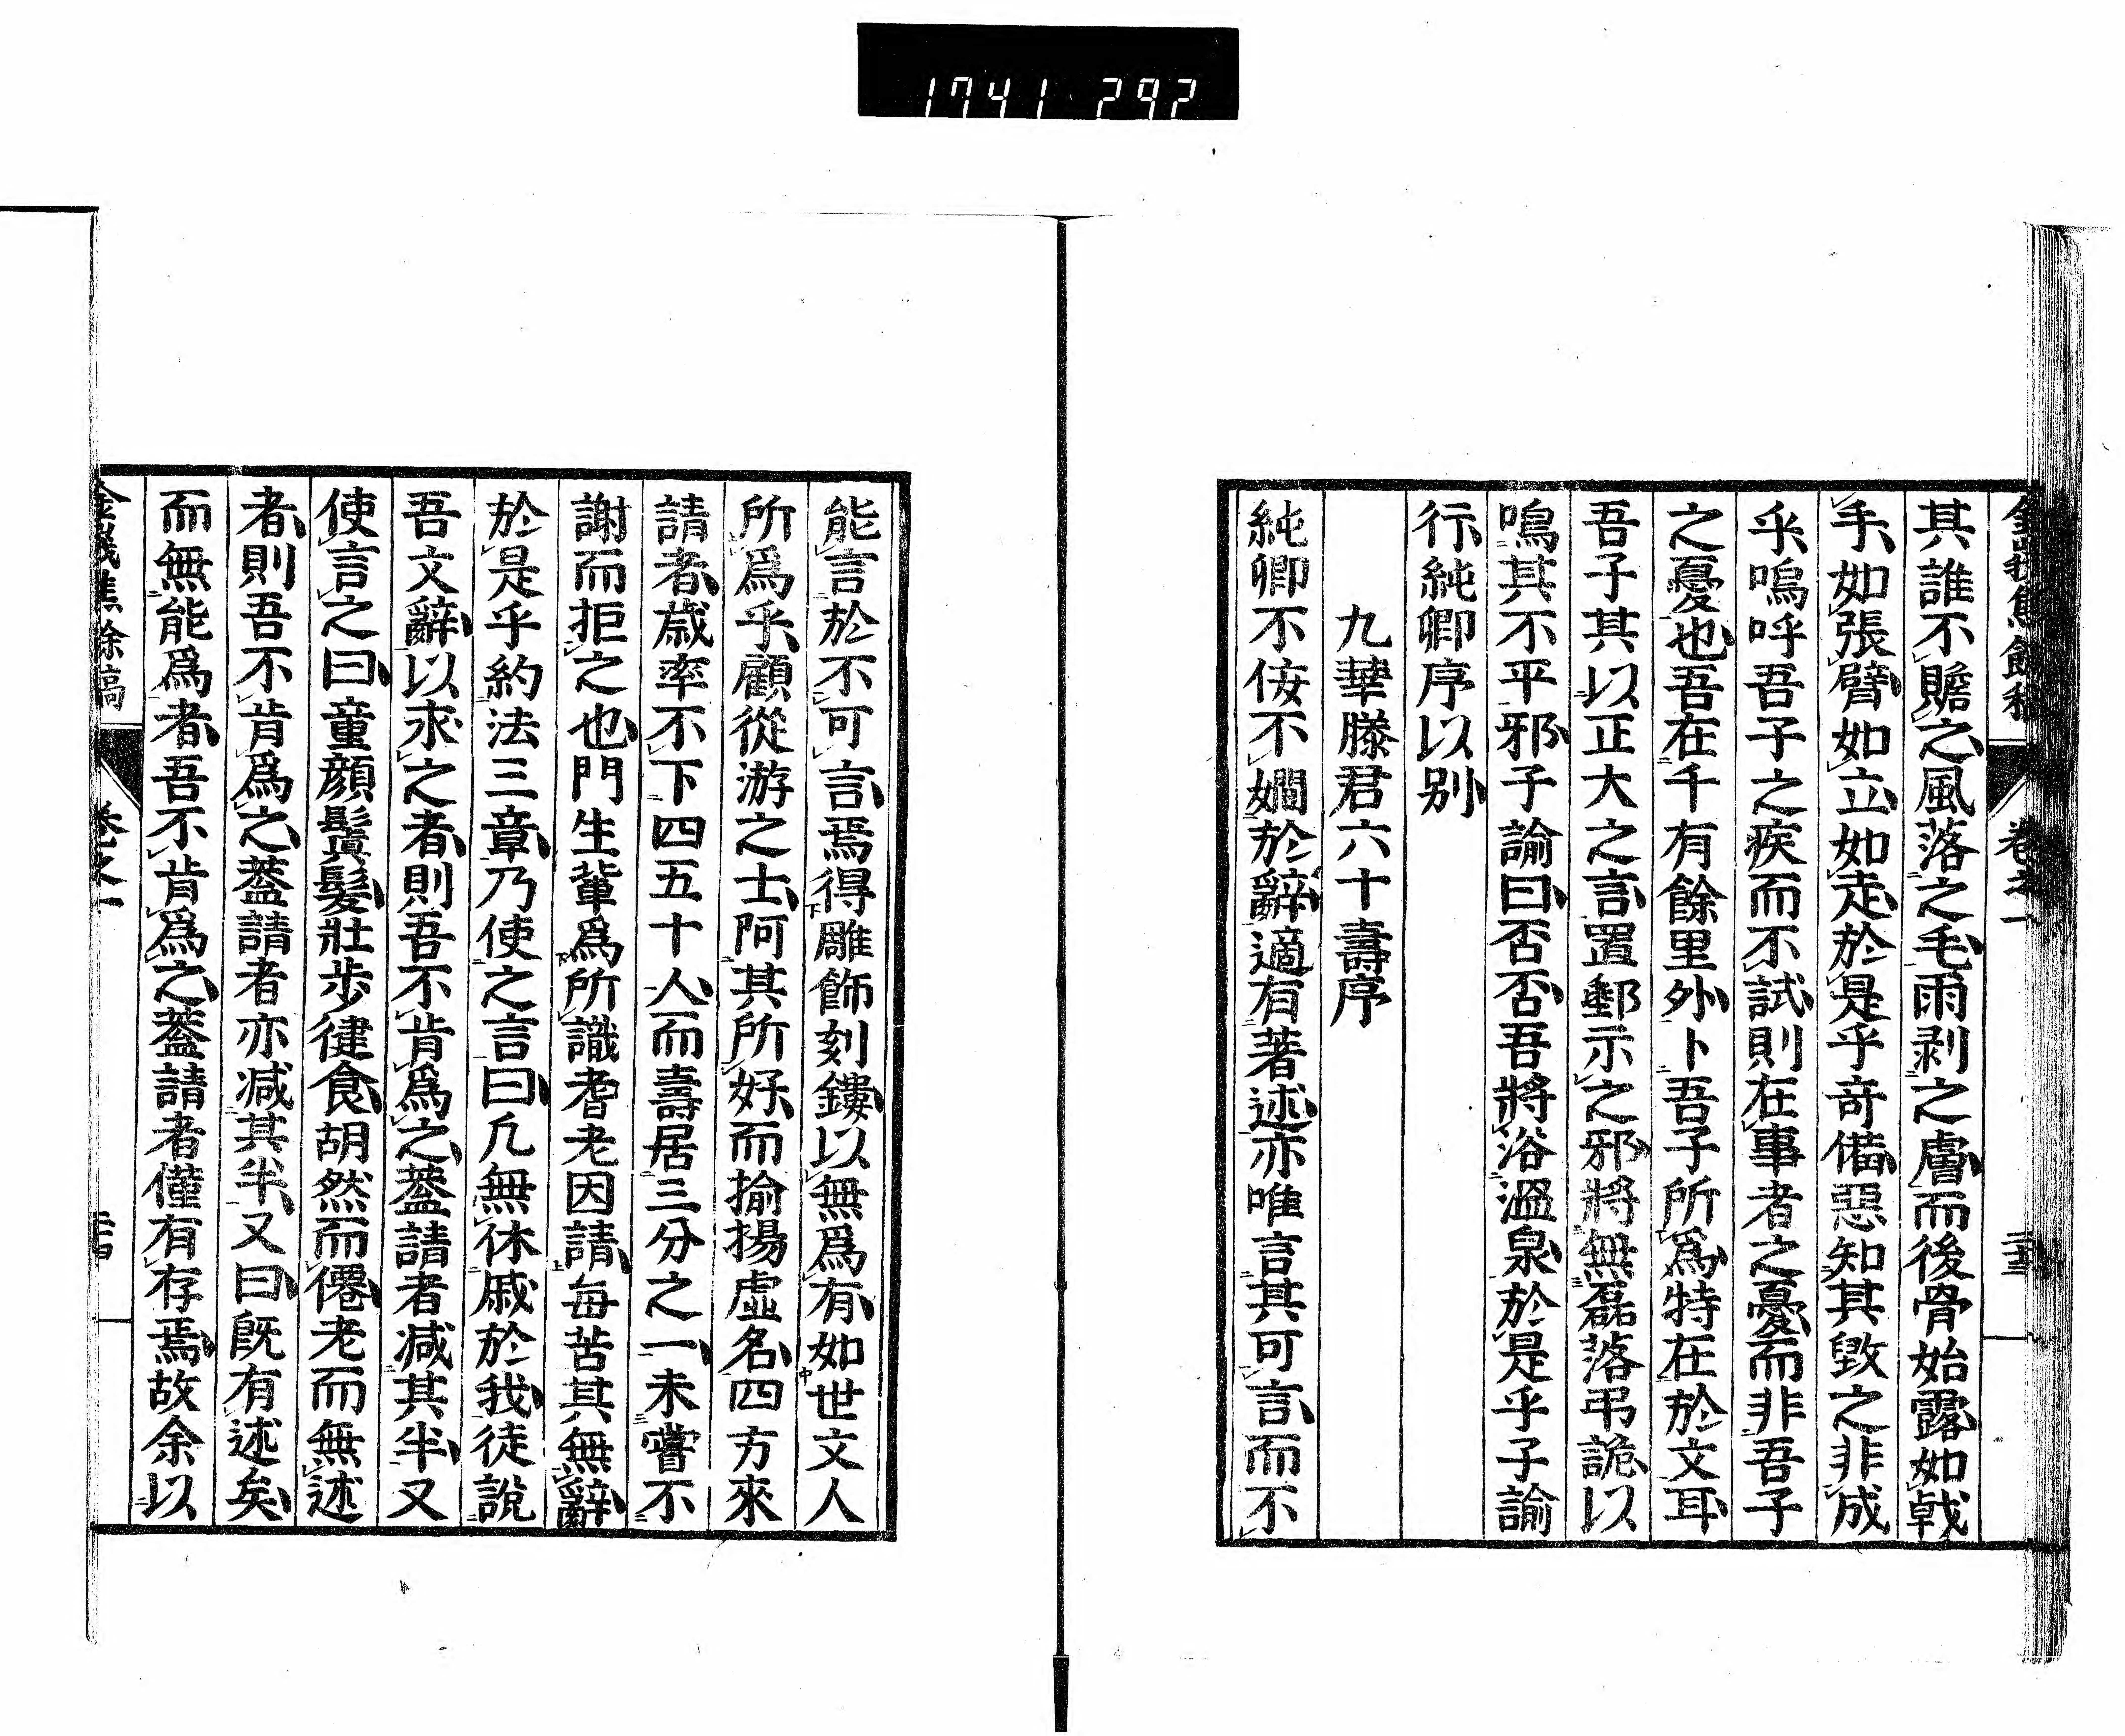 1741 292
其誰不贍之風落之毛雨剥之膚而後骨始露如戟
手如張臂如立如走於是乎奇備惡知其毀之非成
乎嗚呼吾子之疾而不試則在事者之憂而非吾子
之憂也吾在千有餘里外卜吾子所爲特在於文耳
吾子其以正大之言置郵示之邪將無磊落弔詭以
鳴其不平邪子諭曰否否吾將浴溫泉於是乎子諭
行純卿序以别
九華滕君六十壽序
純卿不侫不嫺於辭適有著述亦唯言其可言而不
能言於不可言焉得雕飾刻鏤以無爲有如世文人
所爲乎顧從游之士阿其所好而揄揚虛名四方來
請者歳率不下四五十人而壽居三分之一未嘗不
謝而拒之也門生輩爲所識耆老因請每苦其無辭
於是乎約法三章乃使之言曰凡無休戚於我徒說
吾文辭以求之者則吾不肯爲之葢請者减其半又
使言之曰童顔鬒髮壯歩健食胡然而僊老而無述
者則吾不肯爲之葢請者亦减其半又曰既有述矣
而無能爲者吾不肯爲之葢請者僅有存焉故余以
卷之一